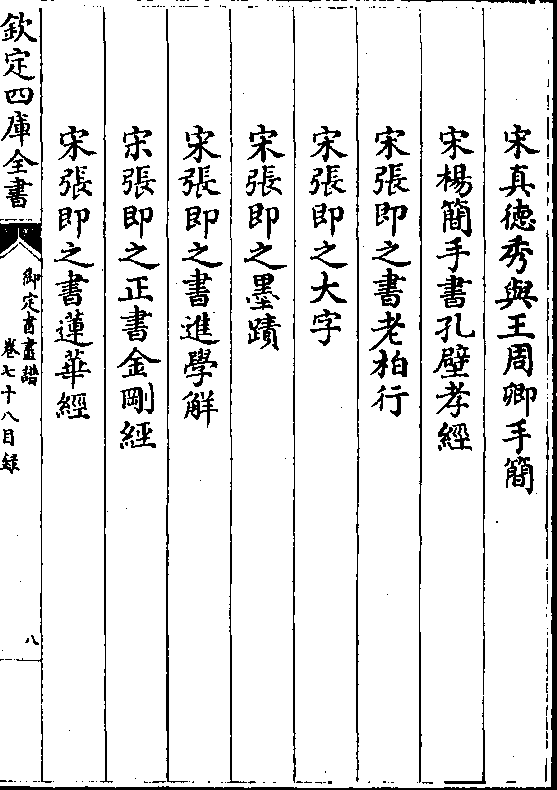 宋真德秀與王周卿手簡
宋楊簡手書孔壁孝經
宋張即之書老柏行
宋張即之大字
宋張即之墨蹟
宋張即之書進學解
宋張即之正書金剛經
宋張即之書蓮華經
欽定四庫全書
御定書畫譜
卷七十八目録
八